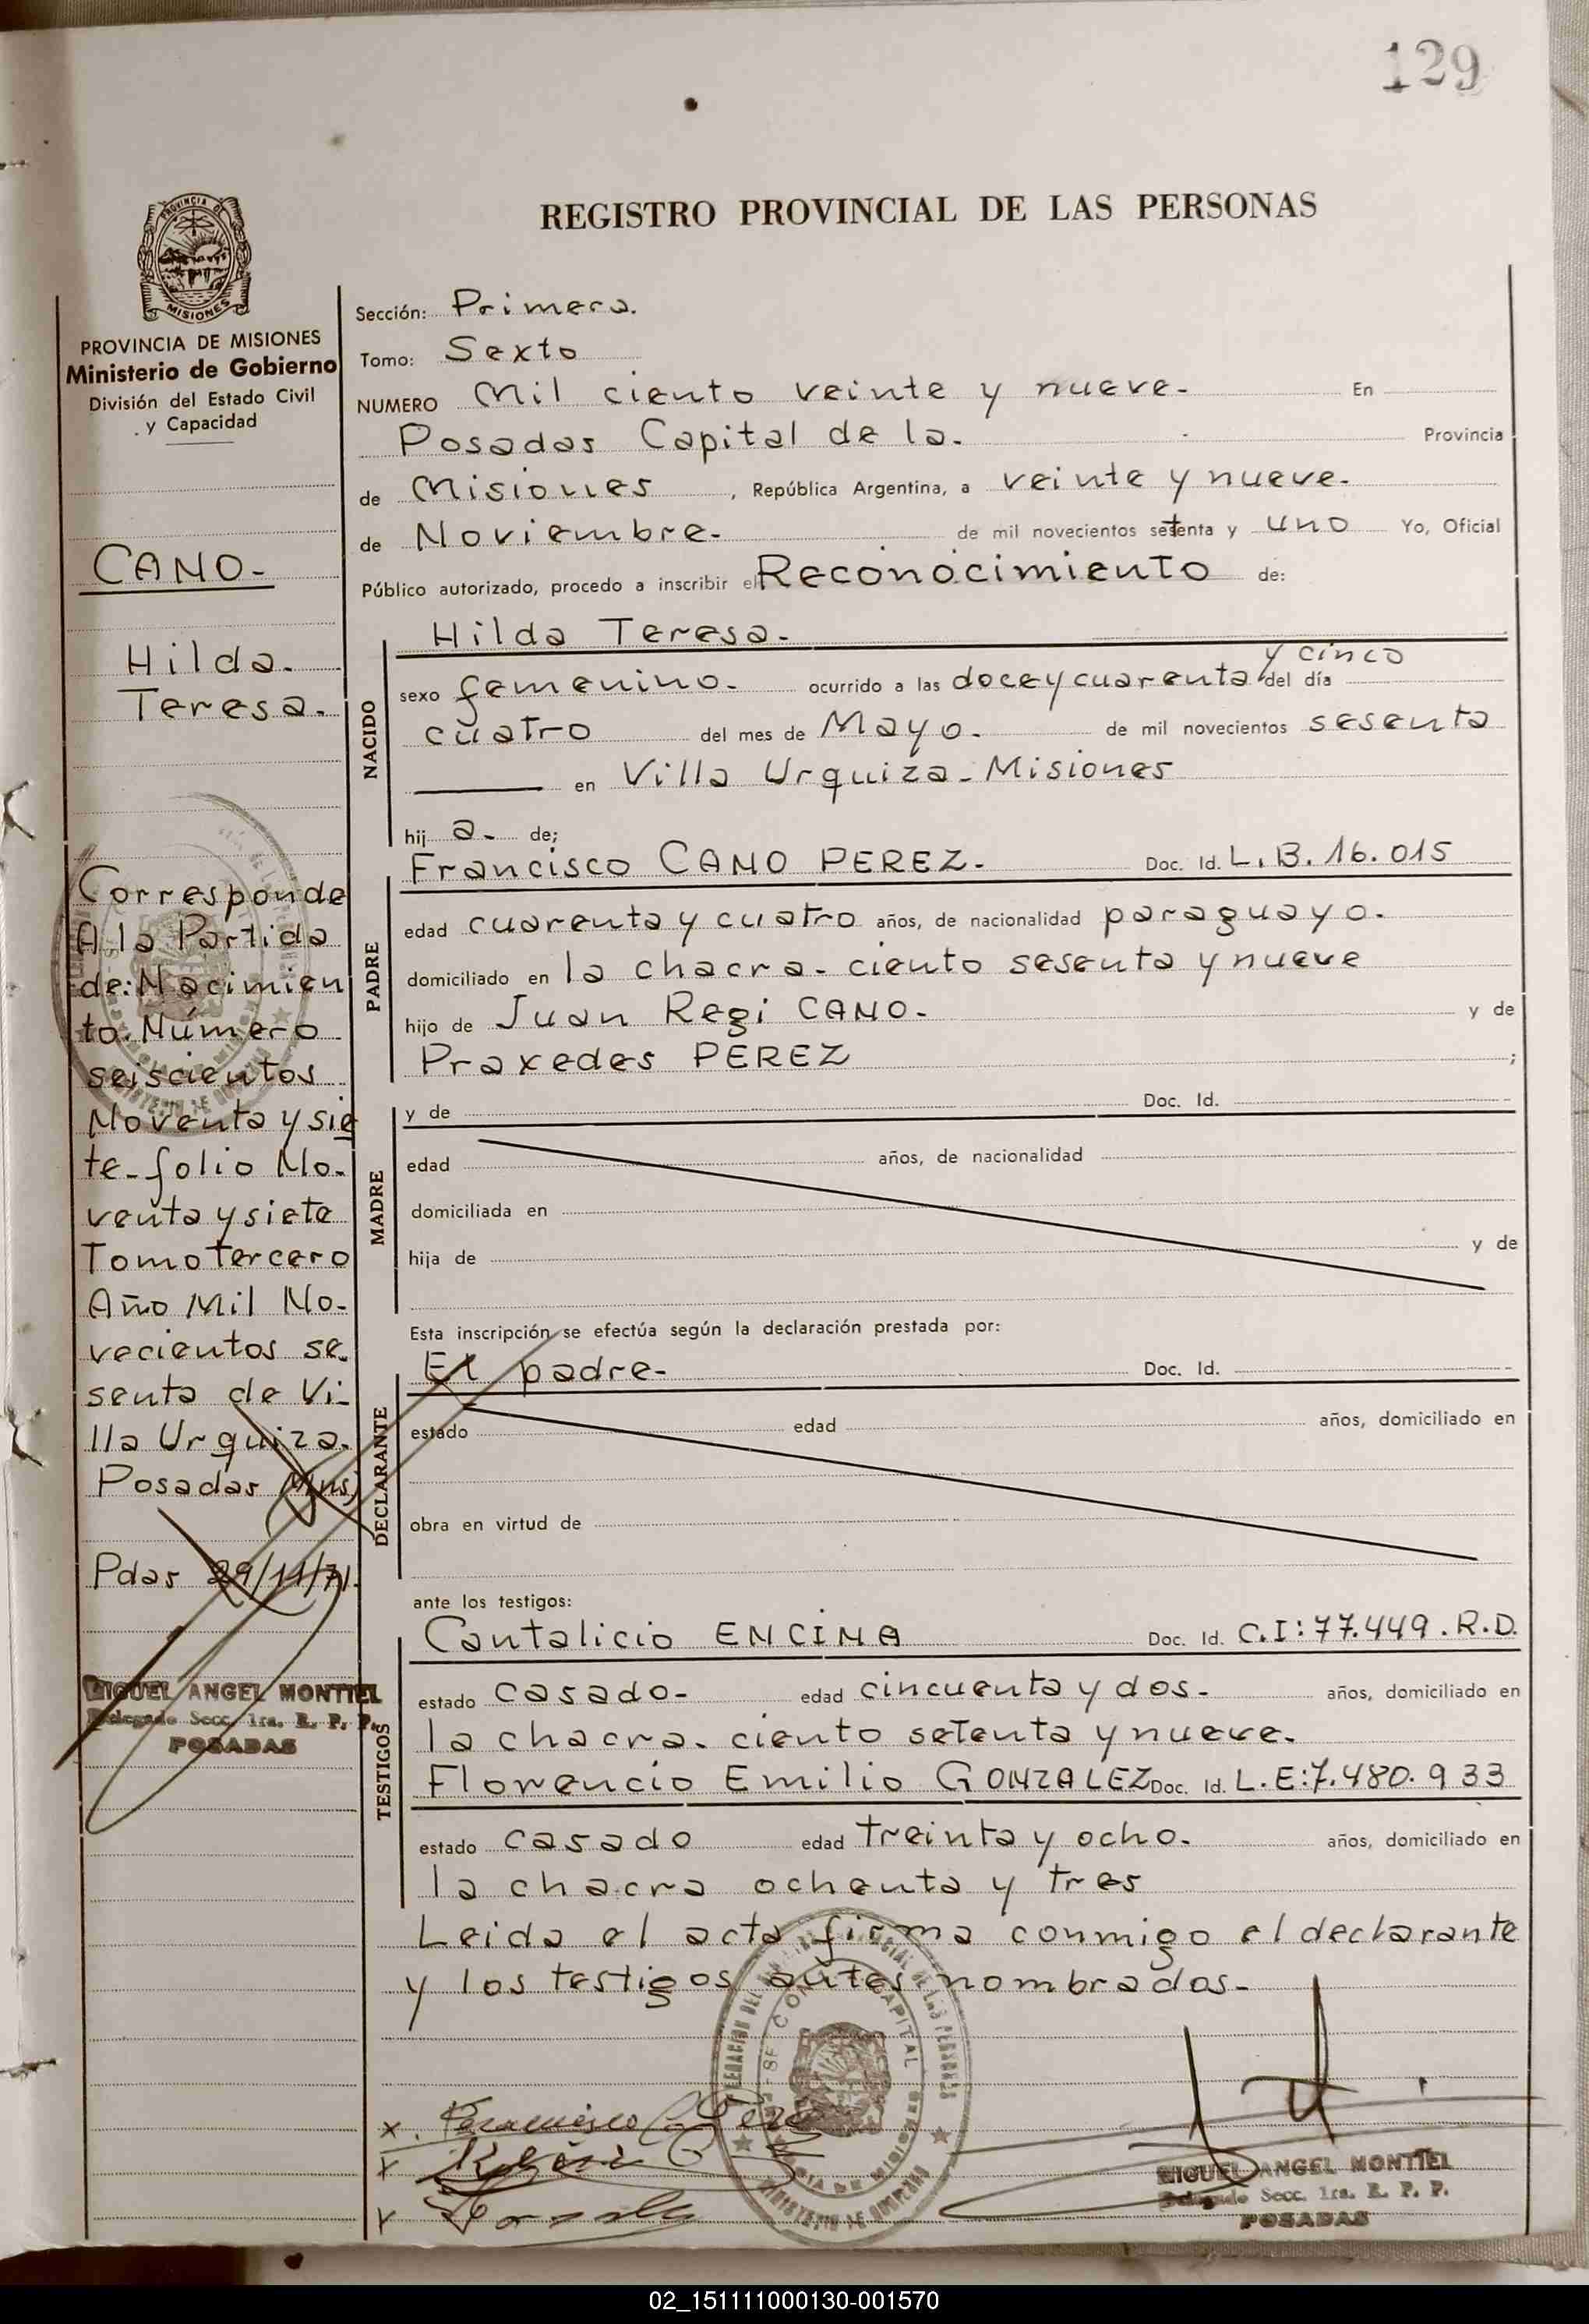 129
REGISTRO PROVINCIAL DE LAS PERSONAS
PROVINCIA DE
MISIONES
PROVINCIA DE MISIONES
Ministerio de Gobierno
División del Estado Civil
y Capacidad
CANO-
Hilda.
Teresa.
Corresponde
A la Partida
de: Nacimien
to. Número
seiscientos
Noventa y sie
te- folio No-
venta y siete
Tomo tercero
Año Mil No-
vecientos se-
senta de Vi-
lla Urquiza.
Posadas Mns)
Pdas 29/11/71.
MIGUEL ANGEL MONTIEL
Delegado Secc. 1ra. R. P. P.
POSADAS
Sección: Primera.
Tomo: Sexto
NUMERO Mil ciento veinte y nueve- En
Posadas Capital de la. Provincia
de Misiones , República Argentina, a veinte y nueve.
de Noviembre. de mil novecientos setenta y uno Yo, Oficial
Público autorizado, procedo a inscribir el Reconocimiento de:
Hilda Teresa.
y cinco
NACIDO
sexo femenino. ocurrido a las doce y cuarenta del día
cuatro del mes de Mayo. de mil novecientos sesenta
en Villa Urquiza- Misiones
hij a. de;
Francisco CANO PEREZ. Doc. Id. L.B. 16.015
PADRE
edad cuarenta y cuatro años, de nacionalidad paraguayo.
domiciliado en la chacra- ciento sesenta y nueve
hijo de Juan Regi CANO. y de
Praxedes PEREZ ;
MADRE
y de Doc. Id.
edad años, de nacionalidad
domiciliada en
hija de y de
Esta inscripción se efectúa según la declaración prestada por:
El padre- Doc. Id.
DECLARANTE
estado edad años, domiciliado en
obra en virtud de
ante los testigos:
Cantalicio ENCINA Doc. Id. C.I: 77.449. R.D.
TESTIGOS
estado casado- edad cincuenta y dos. años, domiciliado en
la chacra. ciento setenta y nueve.
Florencio Emilio GONZALEZ Doc. Id. L.E: 7.480.933
estado casado edad treinta y ocho. años, domiciliado en
la chacra ochenta y tres
Leida el acta firma conmigo el declarante
y los testigos antes nombrados-
MIGUEL ANGEL MONTIEL
Delegado Secc. 1ra. R. P. P.
POSADAS
02_151111000130-001570